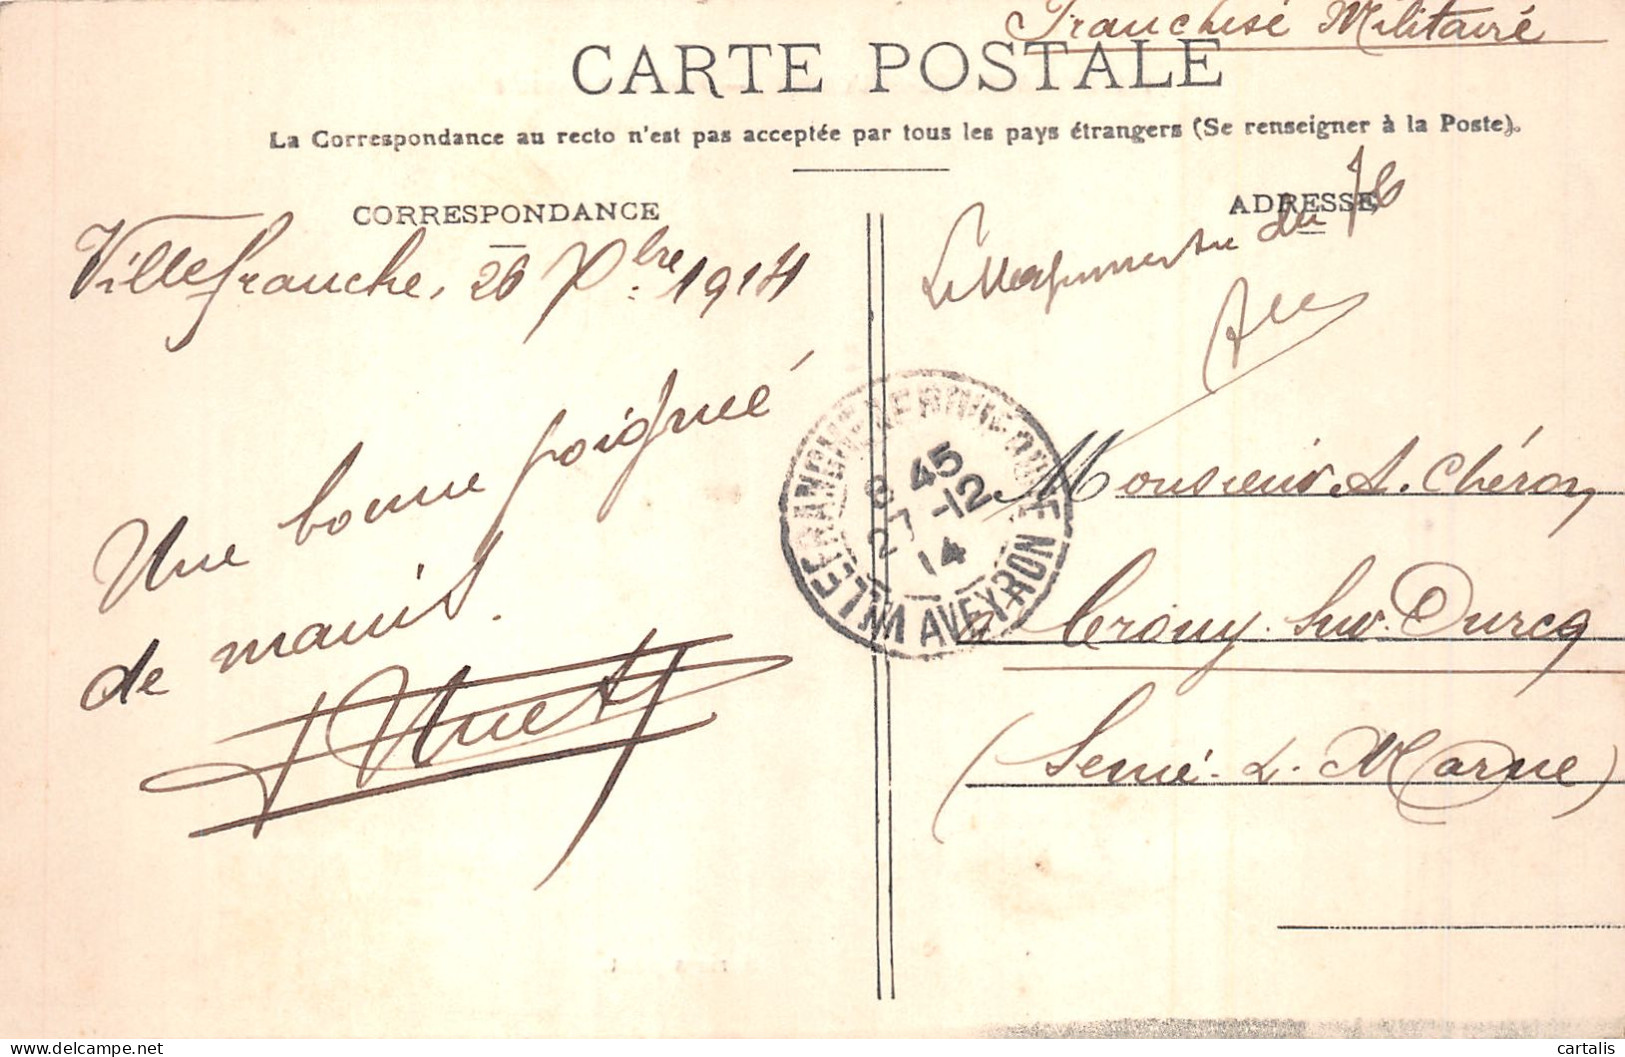 Franchise Militaire
CARTE POSTALE
La Correspondance au recto n'est pas acceptée par tous les pays étrangers (Se renseigner à la Poste).
CORRESPONDANCE
Villefranche, 26 Xbre 1914
Une bonne poignée
de mains.
Huet
ADRESSE
du
VILLEFRANCHE DE ROUERGUE
8 45
27 -12
14
AVEYRON
Monsieur A. Chéron
à Crouy-Sur-Ourcq
(Seine-&-Marne)
cartalis